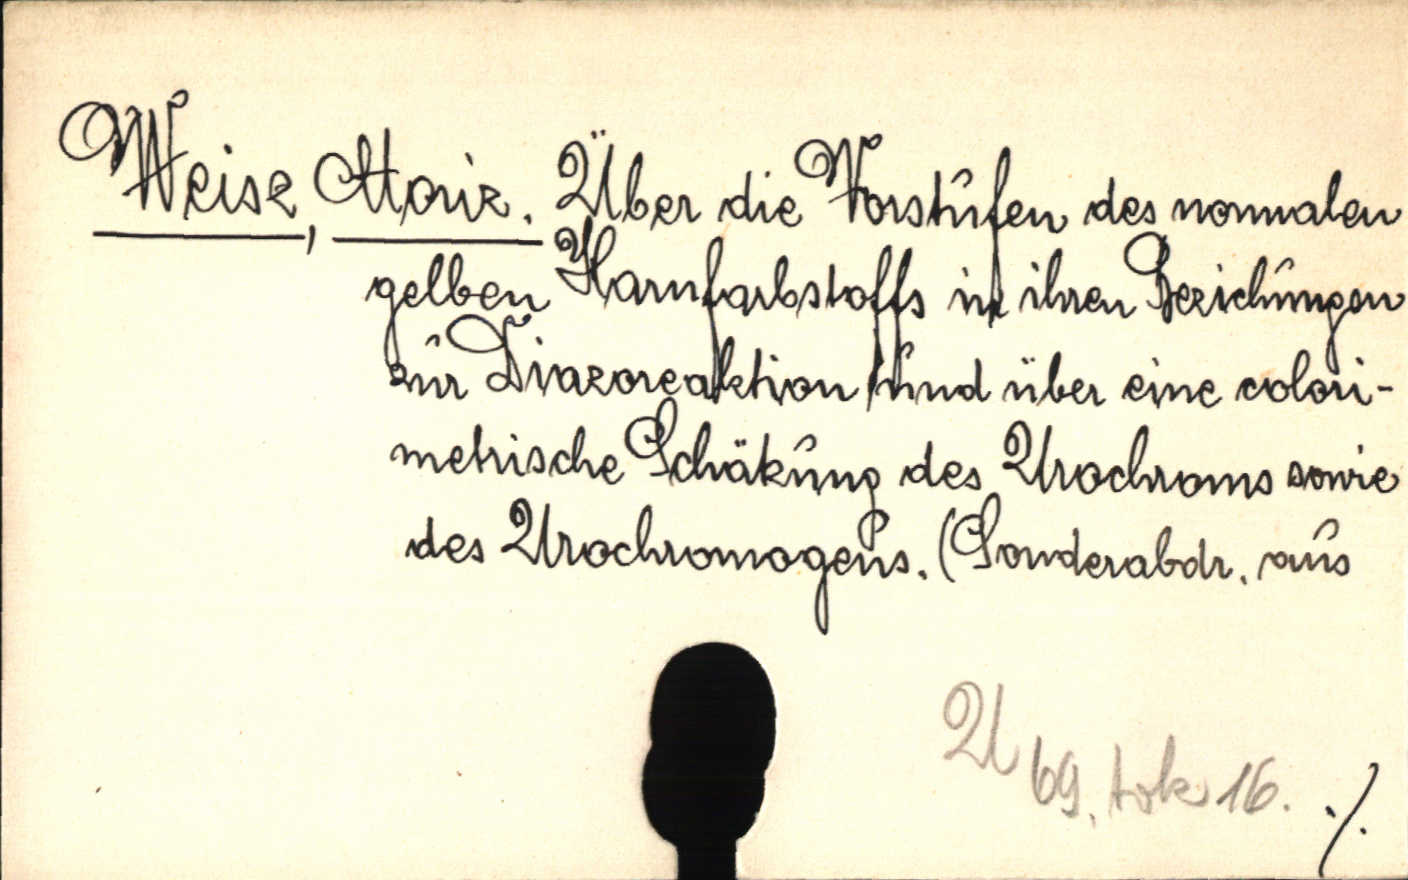 Weise, Moriz. Über die Vorstufen des normalen
gelben Harnfarbstoffs in ihren Beziehungen
zur Diazoreaktion und über eine colori-
metrische Schätzung des Urochroms sowie
des Urochromogens. (Sonderabdr. aus
U 69, tok 16. ./.